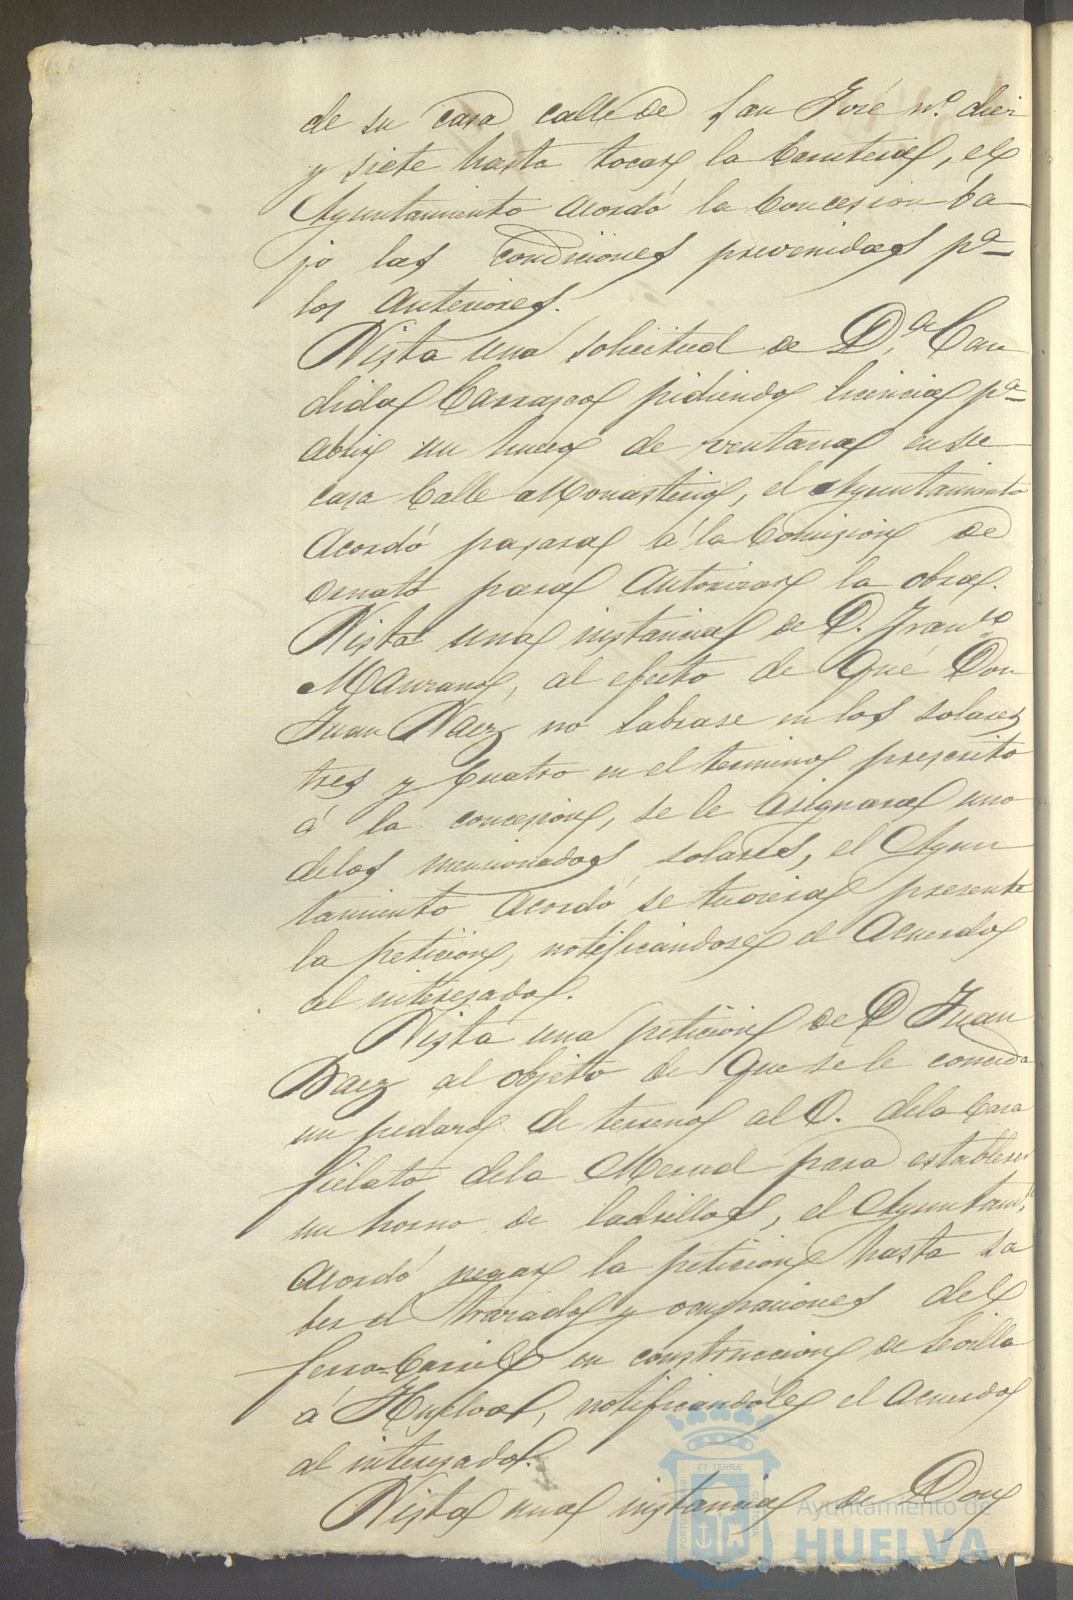 de su casa calle de San José nº. diez
y siete hasta tocar la Carretera, el
Ayuntamiento acordó la Concesion ba-
jo las condiciones prevenidas pª
los anteriores.
Vista una solicitud de D.ª Can
dida Carrasco pidiendo licencia pª
abrir un hueco de ventana en su
casa Calle Monasterio, el Ayuntamiento
acordó pasara á la Comision de
ornato para autorizar la obra.
Vista una instancia de D. Franco
Manzano, al efecto de que Don
Juan Baez no labrase en los solares
tres y Cuatro en el termino prescrito
á la concesion, se le asignara uno
delos mencionados solares, el Ayun
tamiento acordó se tuviera presente
la peticion, notificandose el Acuerdo
al interesado.
Vista una peticion de D Juan
Baez al objeto de que se le conceda
un pedazo de terreno al O. dela Casa
fielato dela Merced para establecer
un horno de ladrillos, el Ayuntamto
acordó negar la peticion hasta sa
ber el trazado y ocupaciones del
ferro-Carril en construccion de Sevilla
á Huelva, notificandole el acuerdo
al interesado.
Vista una instancia de Don
ET TERRÆ
Ayuntamiento de
HUELVA